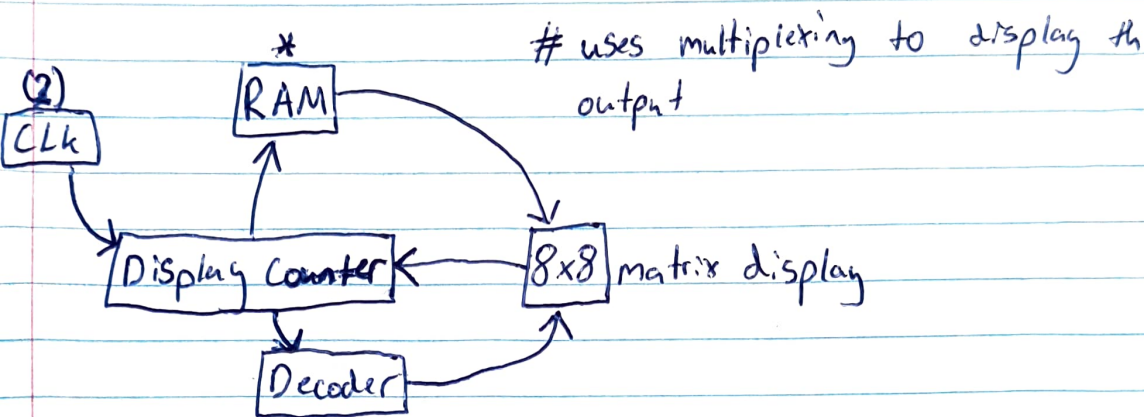 # uses multiplexing to display th
output
*
RAM
(2)
CLk
Display Counter
8x8 matrix display
Decoder